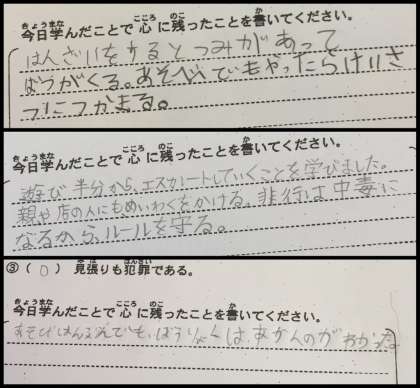 きょうまな こころ のこ か
今日学んだことで心に残ったことを書いてください。
はんざいをするとつみがあって
ばつがくる。あそびでもやったらけいさ
つにつかまる。
きょうまな こころ のこ か
今日学んだことで心に残ったことを書いてください。
遊び半分から、エスカレートしていくことを学びました。
親や店の人にもめいわくをかける。非行は中毒に
なるから、ルールを守る。
み は はんざい
③(○)見張りも犯罪である。
きょうまな こころ のこ か
今日学んだことで心に残ったことを書いてください。
あそびはんぶんでも、ぼうりょくは、あかんのがわかった